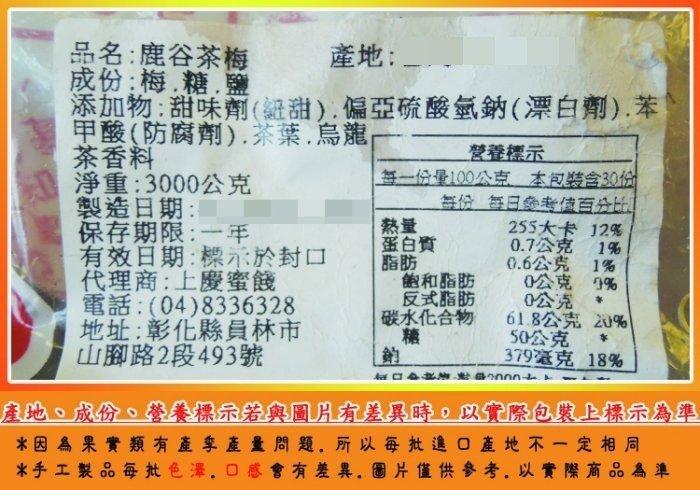 品名:鹿谷茶梅 產地:
成份:梅.糖.鹽
添加物:甜味劑(紐甜).偏亞硫酸氫鈉(漂白劑).苯
甲酸(防腐劑).茶葉.烏龍
茶香料
淨重:3000公克
製造日期:
保存期限:一年
有效日期:標示於封口
代理商:上慶蜜餞
電話:(04)8336328
地址:彰化縣員林市
山腳路2段493號
營養標示
每一份量100公克 本包裝含30份
每份 每日參考值百分比
熱量 255大卡 12%
蛋白質 0.7公克 1%
脂肪 0.6公克 1%
飽和脂肪 0公克 0%
反式脂肪 0公克 *
碳水化合物 61.8公克 20%
糖 50公克 *
鈉 379毫克 18%
產地、成份、營養標示若與圖片有差異時,以實際包裝上標示為準
*因為果實類有產季產量問題.所以每批進口產地不一定相同
*手工製品每批色澤.口感會有差異.圖片僅供參考.以實際商品為準